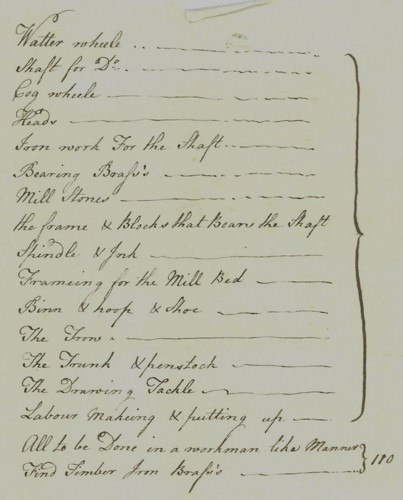 Watter wheele
Shaft for Do.
Cog wheele
Heads
Iron work For the Shaft
Bearing Brass's
Mill Stones
the frame & Blocks that Bears the Shaft
Spindle & Ink
Frameing for the Mill Bed
Binn & hoop & Shoe
The Trow
The Trunk & penstock
The Drawing Tackle
Labour Makeing & putting up
All to be Done in a workman like Manner
Find Timber Iron Brass's 110